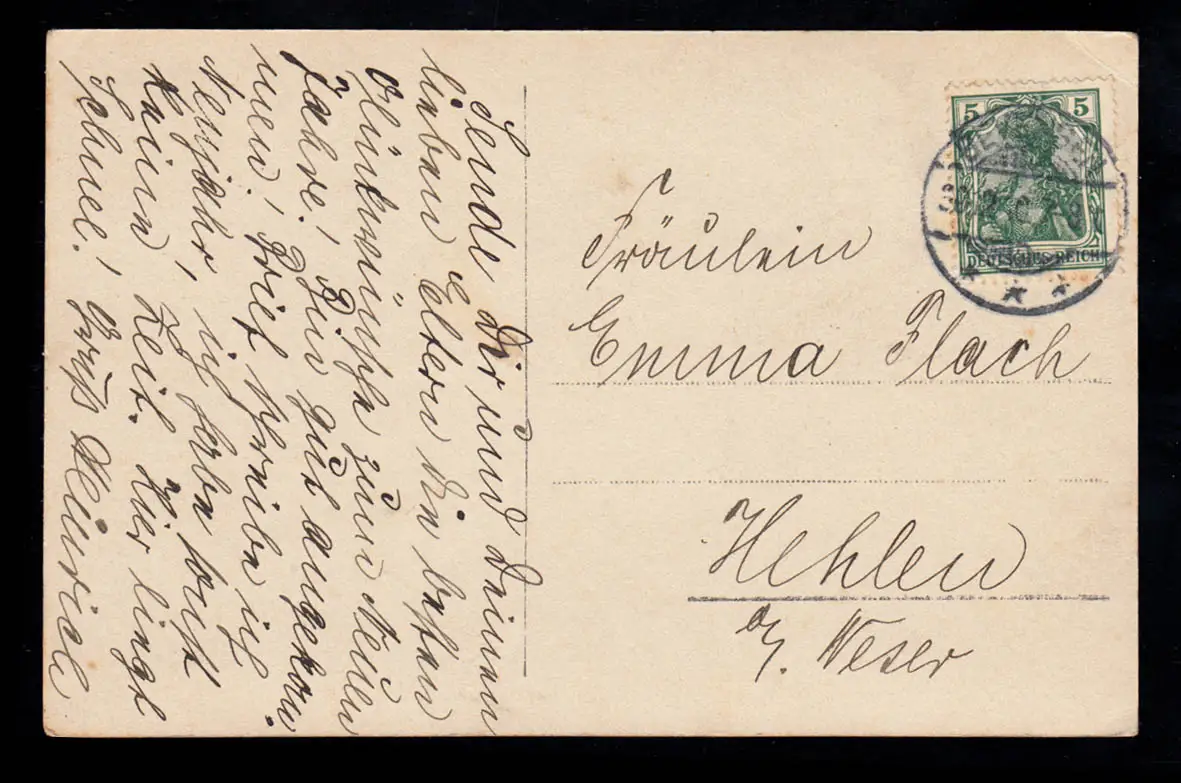 Sende Dir und Deinen
lieben Eltern die besten
Glückwünsche zum Neuen
Jahre! Bin gut angekom-
men! Brief schreibe ich
Neujahr, ich habe sonst
kein Zeit. Hier liegt
Schnee! Gruß Heinrich
5 5
DEUTSCHES REICH
Fräulein
Emma Flach
Hehlen
a/. Weser